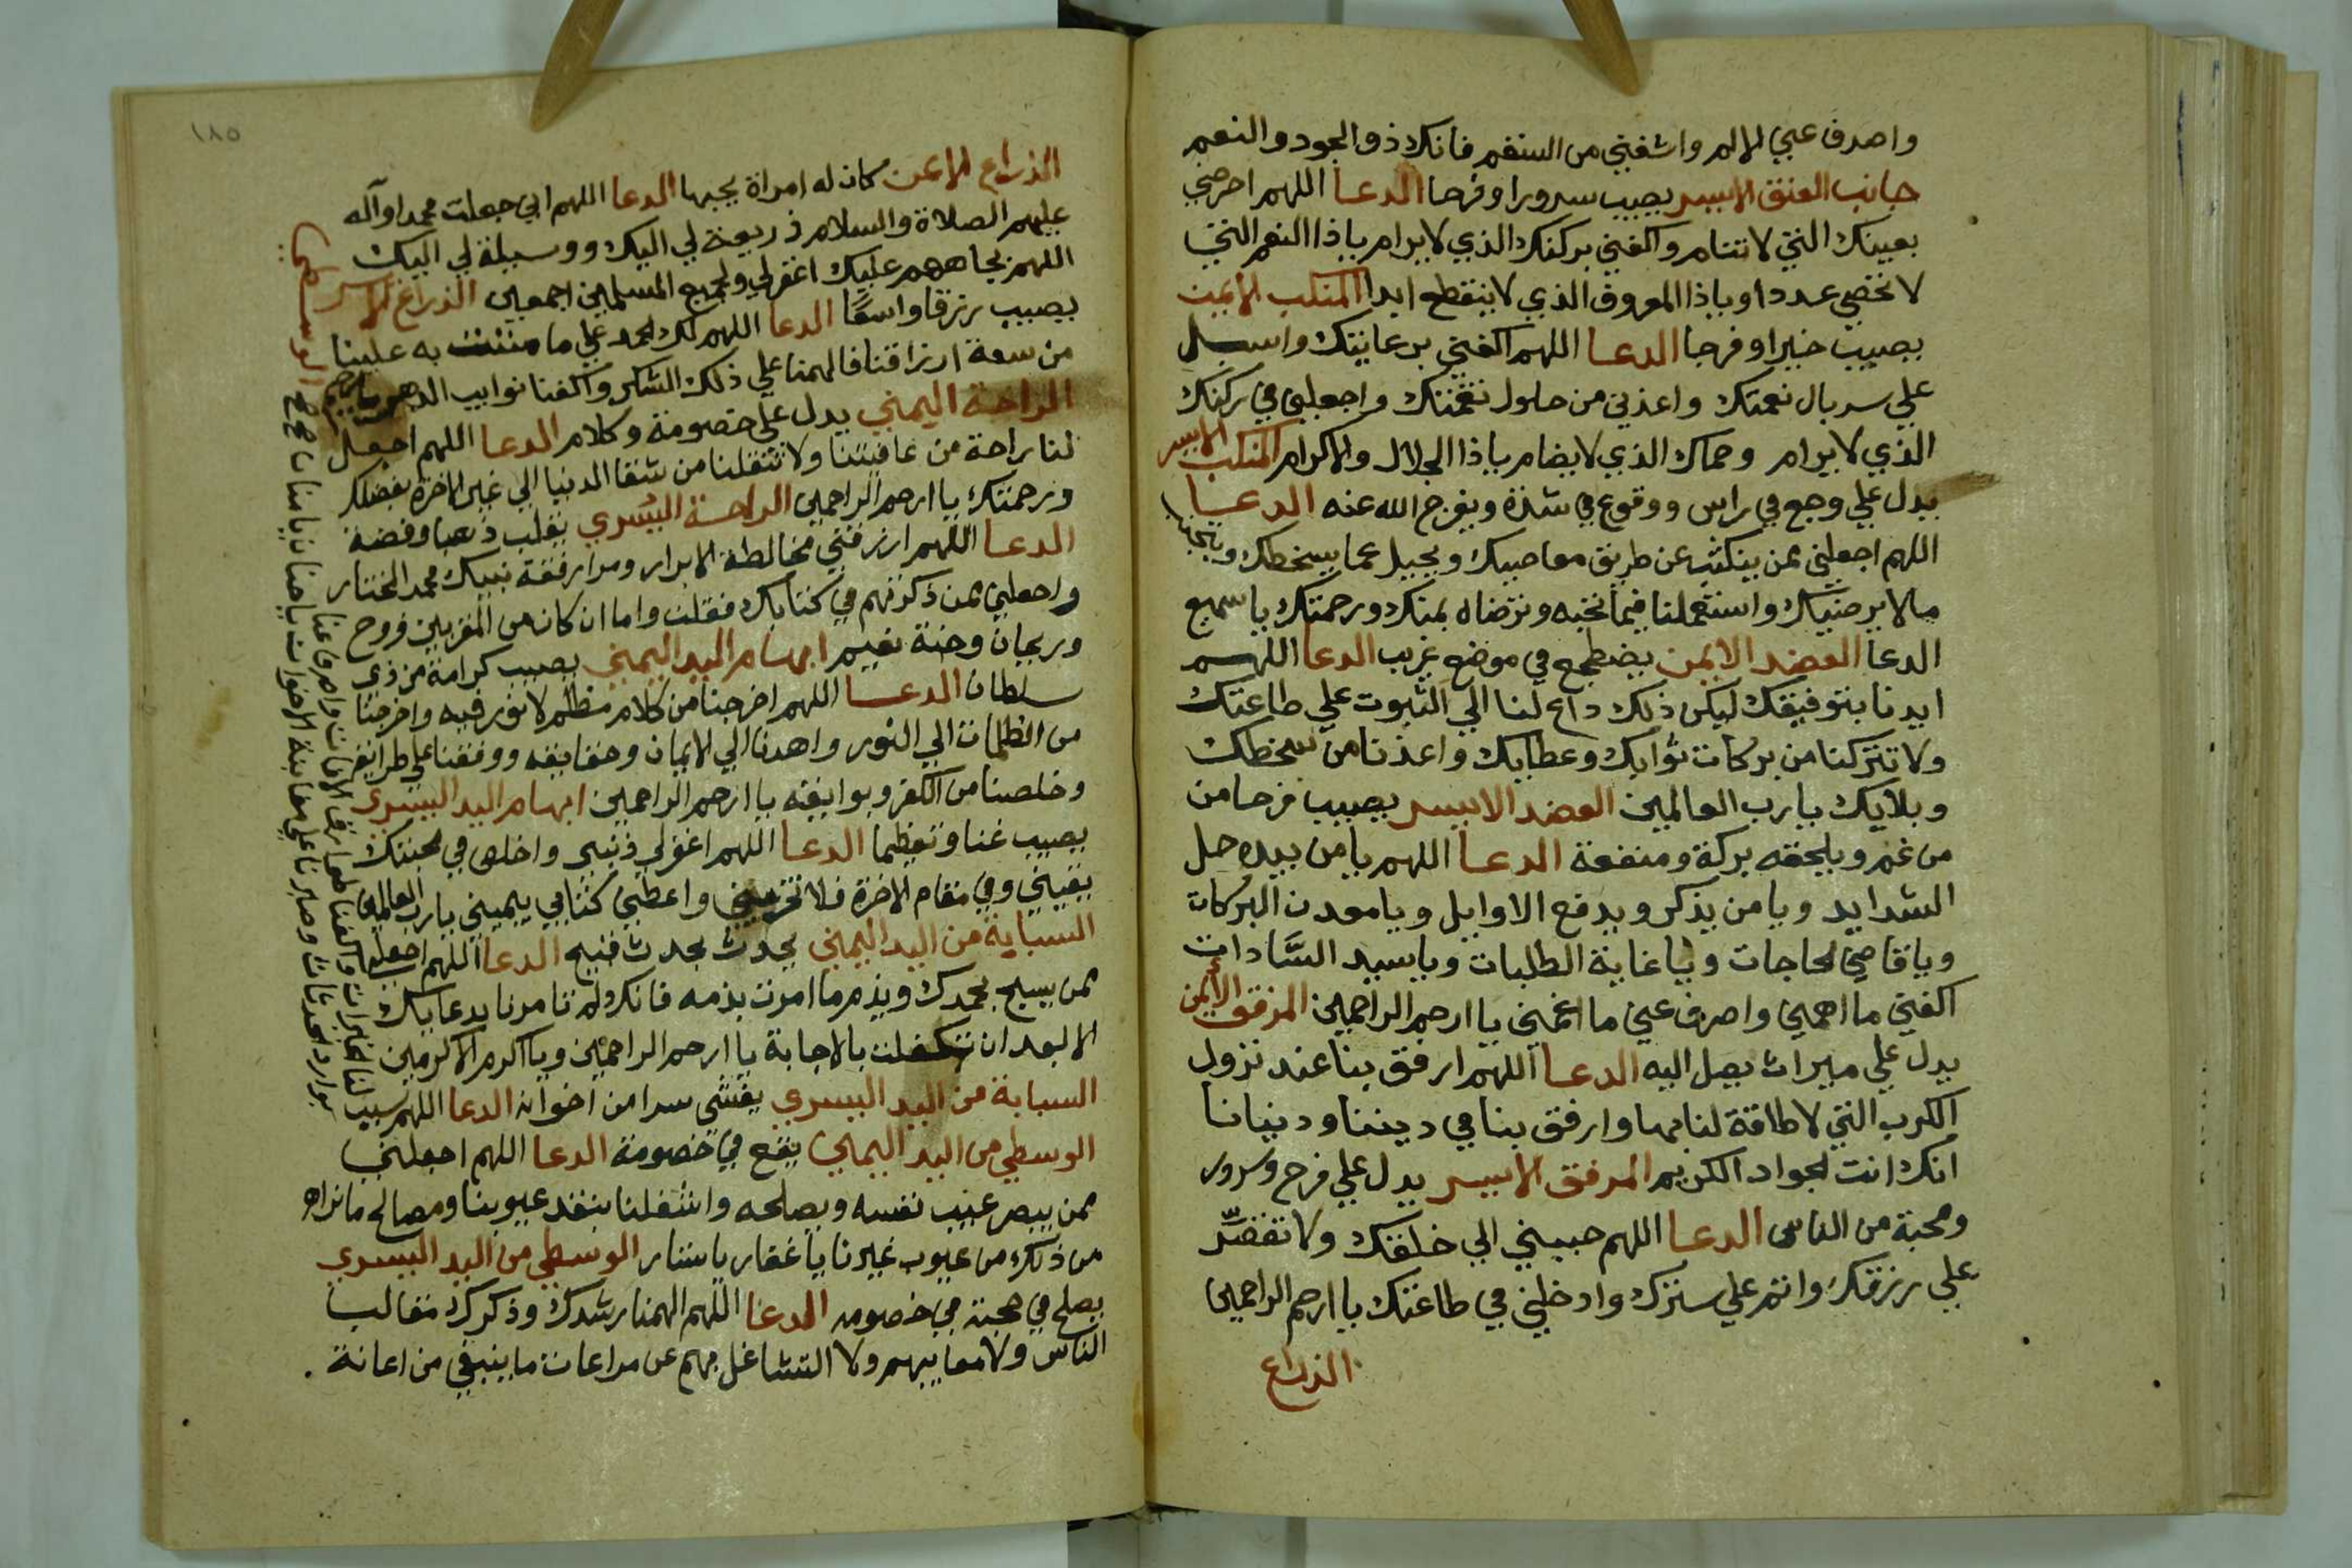 واصرف عني الالم واشفني من السقم فانك ذو الجود والنعم
جانب العنق الايسر يصيب سرورا وفرحا الدعا اللهم احرصني
بعينك التي لا تنام واكفني بركنك الذي لا يرام يا ذا النعم التي
لا تحصى عددا ويا ذا المعروف الذي لا ينقطع ابدا المنكب الايمن
يصيب خيرا وفرحا الدعا اللهم اكفني برعايتك واسبل
علي سربال نعمتك واعذني من حلول نقمتك واجعلني في ركنك
الذي لا يرام وحماك الذي لا يضام يا ذا الجلال والاكرام المنكب الايسر
يدل علي وجع في راس ووقوع في شدة ويفرج الله عنه الدعا
اللهم اجعلني ممن ينكث عن طريق معاصيك ويحيل عما يسخطك ويتجنب
ما لا يرضيك واستعملنا فيما تحبه وترضاه بمنك ورحمتك يا سميع
الدعا العضد الايمن يضطجع في موضع غريب الدعا اللهم
ايدنا بتوفيقك ليكن ذلك داع لنا الي الثبوت علي طاعتك
ولا تتركنا من بركات ثوابك وعطايك واعذنا من سخطك
وبلايك يا رب العالمين العضد الايسر يصيب فرحا من
من غم ويلحقه بركة ومنفعة الدعا اللهم يا من بيده حل
الشدايد ويا من يذكر ويدفع الاوايل ويا معدن البركات
ويا قاضي الحاجات ويا غاية الطلبات ويا سيد السَّادات
اكفني ما اهمني واصرف عني ما اغمني يا ارحم الراحمين المرفق الايمن
يدل علي ميراث يصل اليه الدعا اللهم ارفق بنا عند نزول
الكرب التي لا طاقة لنا بها وارفق بنا في ديننا ودنيانا
انك انت الجواد الكريم المرفق الايسر يدل علي فرح وسرور
ومحبة من الناس الدعا اللهم حببني الي خلقك ولا تقتِّر
علي رزقك وانتم علي سترك وادخلني في طاعتك يا ارحم الراحمين
الذراع
١٨٥
الذراع الايمن كان له امراة يحبها الدعا اللهم اني جعلت محمدا وآله
عليهم الصلاة والسلام ذريعة لي اليك ووسيلة لي اليك
اللهم بجاههم عليك اغفر لي ولجميع المسلمين اجمعين الذراع الايسر
يصيب رزقا واسعًا الدعا اللهم لك الحمد علي ما مننت به علينا
من سعة ارزاقنا فالهمنا علي ذلك الشكر واكفنا نوايب الدهر يا رحيم
الراحة اليمني يدل علي خصومة وكلام الدعا اللهم اجعل
لنا راحة من عافيتنا ولا تنقلنا من شقا الدنيا الي غبن الاخرة بفضلك
ورحمتك يا ارحم الراحمين الراحة اليسري يقلب ذهبا وفضة
الدعا اللهم ارزقني مخالطة الابرار ومرافقة نبيك محمد المختار
واجعلني ممن ذكرتهم في كتابك فقلت واما ان كان من المقربين فروح
وريحان وجنة نعيم ابهام اليد اليمني يصيب كرامة من ذي
سلطان الدعا اللهم اخرجنا من كلام مظلم لا نور فيه واخرجنا
من الظلمات الي النور واهدنا الي الايمان وحقايقه ووفقنا علي طرايقه
وخلصنا من الكفر وبوايقه يا ارحم الراحمين ابهام اليد اليسري
يصيب غنا وتعظيما الدعا اللهم اغفر لي ذنبي واخلص في محبتك
يقيني وفي مقام الاخرة فلا تخزيني واعطني كتابي بيميني يا رب العالمين
السبابة من اليد اليمني يحدث بحدث قبيح الدعا اللهم اجعلنا
ممن يسبح بحمدك ويذم ما امرت بذمه فانك لم تامرنا بدعايك
الا بعد ان تكفلت بالاجابة يا ارحم الراحمين ويا اكرم الاكرمين
السبابة من اليد اليسري يفشي سرا من اخوانه الدعا اللهم سبب
لنا الخيرات واكفنا طوارق الافات واصرف عنا
بوارد المحدثات وصبرنا علي معاينة الاخوات يا حنان يا منان
الوسطي من اليد اليمني يقع في خصومة الدعا اللهم اجعلني
ممن يبصر عيب نفسه ويصلحه واشغلنا بنقد عيوبنا ومصالح ما نراه
من ذلك من عيوب غيرنا يا غفار يا ستار الوسطي من اليد اليسري
يصلح في محبة في خصومه الدعا اللهم الهمنا رشدك وذكرك مثالب
الناس ولا معايبهم ولا التشاغل بهم عن مراعات ما ينبغي من اعانة